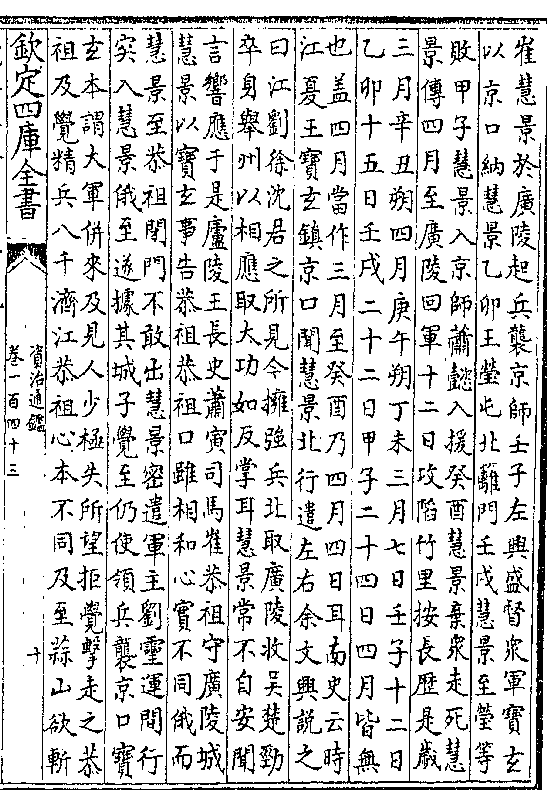 崔慧景於廣陵起兵襲京師壬子左興盛督衆軍寶玄
以京口納慧景乙卯王瑩屯北籬門壬戌慧景至瑩等
敗甲子慧景入京師蕭懿入援癸酉慧景棄衆走死慧
景傳四月至廣陵回軍十二日攻陷竹里按長歴是歲
三月辛丑朔四月庚午朔丁未三月七日壬子十二日
乙卯十五日壬戌二十二日甲子二十四日四月皆無
也葢四月當作三月至癸酉乃四月四日耳南史云時
江夏王寶玄鎮京口聞慧景北行遣左右余文興説之
曰江劉徐沈君之所見今擁強兵北取廣陵收吳楚勁
卒身舉州以相應取大功如反掌耳慧景常不自安聞
言響應于是廬陵王長史蕭寅司馬崔恭祖守廣陵城
慧景以寶玄事告恭祖恭祖口雖相和心實不同俄而
慧景至恭祖閉門不敢出慧景密遣軍主劉靈運間行
突入慧景俄至遂據其城子覺至仍使領兵襲京口寶
玄本謂大軍併來及見人少極失所望拒覺擊走之恭
祖及覺精兵八千濟江恭祖心本不同及至蒜山欲斬
欽定四庫全書
資治通鑑
卷一百四十三
十